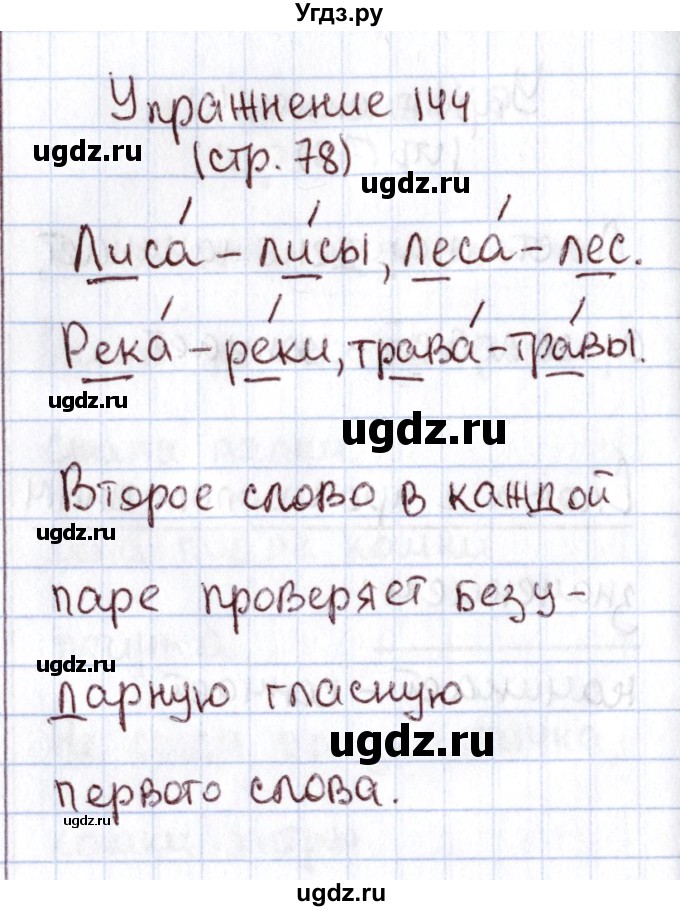 Угдз.ру
Упражнение 144
ugdz.ru (стр. 78) ugdz.ru
Лиса́ - ли́сы, леса́ - лес.
Река́ - ре́ки, трава́ - тра́вы.
ugdz.ru
ugdz.ru
Второе слово в каждой
ugdz.ru
паре проверяет безу-
ugdz.ru
дарную гласную
ugdz.ru
первого слова.
ugdz.ru
ugdz.ru